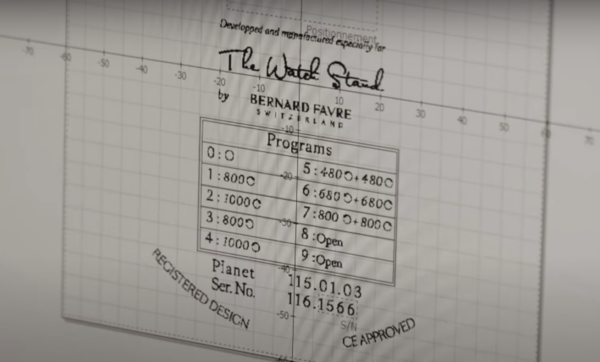 Positionnement
Developped and manufactured especially for
The Watch Stand
by BERNARD FAVRE
SWITZERLAND
Programs
0:O
1:800C 5:480Ͻ+480C
2:1000C 6:680Ͻ+680C
3:800Ͻ 7:800Ͻ+800C
4:1000Ͻ 8:Open
9:Open
Planet 115.01.03
Ser. No. 116.1566
S/N
REGISTERED DESIGN
CE APPROVED
-70 -60 -50 -40 -30 -20 -10 10 20 30 40 50 60 70
-10
-20
-30
-40
-50